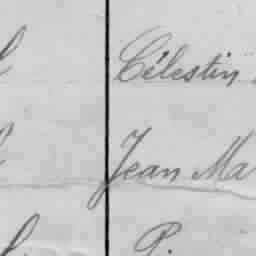 Célestin
Jean Ma
P.